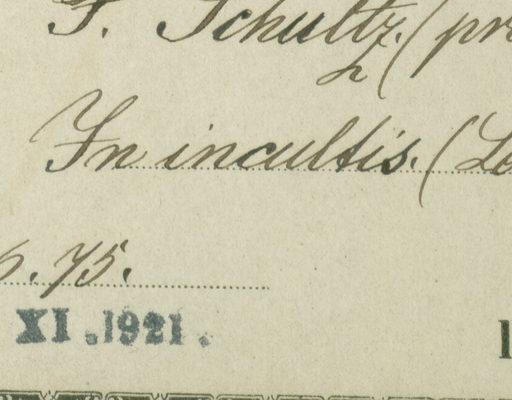 F. Schultz. (pr
In incultis. (Lo
6.75.
XI.1921.